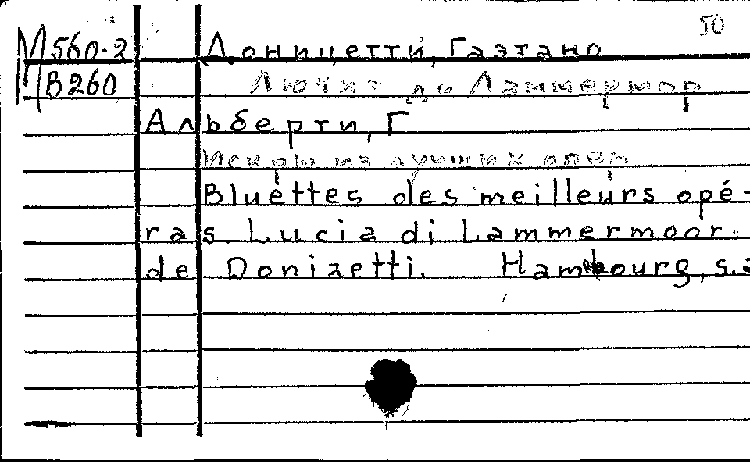 50
М 560-2 Доницетти, Гаэтано
П В260 Лючия ди Ламмермур
Альберти, Г
Искры из лучших опер
Bluettes des meilleurs opé-
ras. Lucia di Lammermoor
de Donizetti. Hambourg, s.a